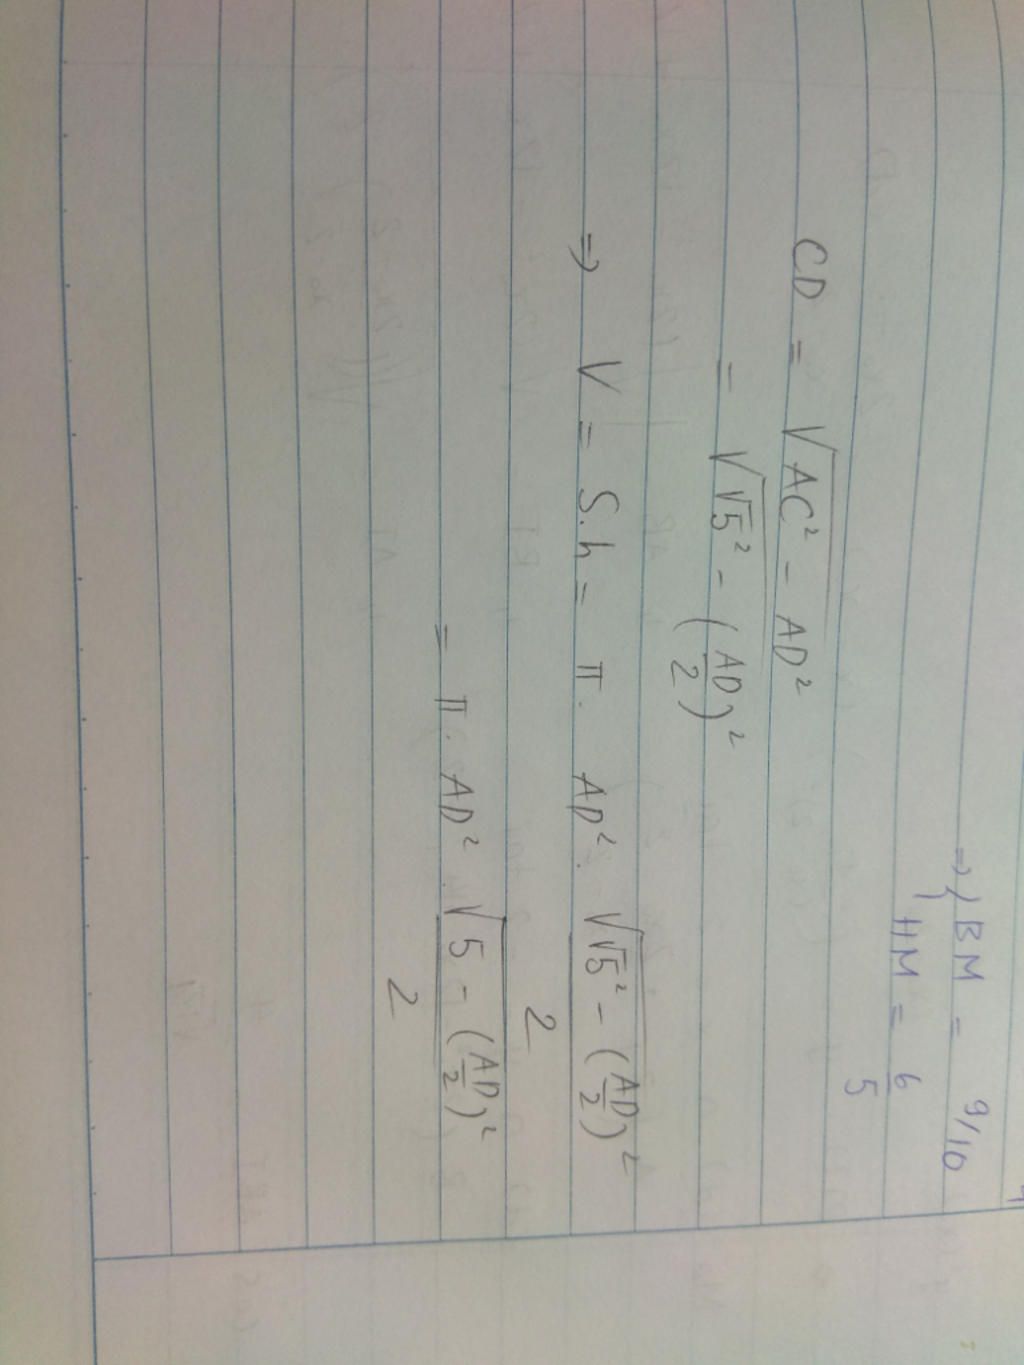 => BM = 9/10
HM = 6/5
CD = √(AC² - AD²)
= √(√5² - (AD/2)²)
=> V = S.h = π. AD². √(√5² - (AD/2)²)/2
= π. AD². √(5 - (AD/2)²)/2